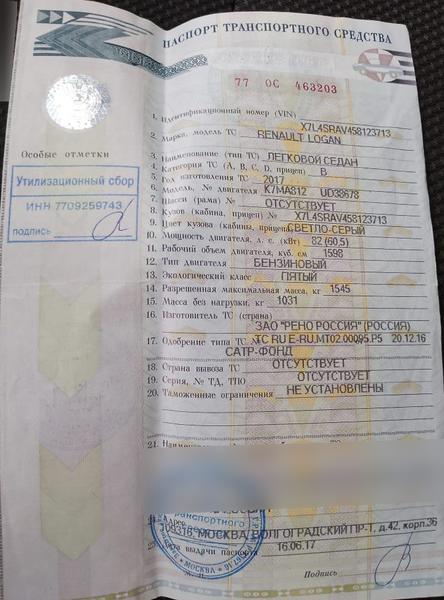 ПАСПОРТ ТРАНСПОРТНОГО СРЕДСТВА
77 ОС 463203
1. Идентификационный номер (VIN) X7L4SRAV458123713
2. Марка, модель ТС RENAULT LOGAN
3. Наименование (тип ТС) ЛЕГКОВОЙ СЕДАН
Особые отметки
4. Категория ТС (A, B, C, D, прицеп) B
5. Год изготовления ТС 2017
6. Модель, № двигателя K7MA812 UD38678
7. Шасси (рама) № ОТСУТСТВУЕТ
8. Кузов (кабина, прицеп) № X7L4SRAV458123713
9. Цвет кузова (кабины, прицепа) СВЕТЛО-СЕРЫЙ
10. Мощность двигателя, л. с. (кВт) 82 (60,5)
11. Рабочий объем двигателя, куб. см 1598
12. Тип двигателя БЕНЗИНОВЫЙ
13. Экологический класс ПЯТЫЙ
14. Разрешенная максимальная масса, кг 1545
15. Масса без нагрузки, кг 1031
16. Изготовитель ТС (страна)
ЗАО "РЕНО РОССИЯ" (РОССИЯ)
17. Одобрение типа ТС № ТС RU E-RU.MT02.00095.P5 20.12.16
САТР-ФОНД
18. Страна вывоза ТС ОТСУТСТВУЕТ
19. Серия, № ТД, ТПО ОТСУТСТВУЕТ
20. Таможенные ограничения НЕ УСТАНОВЛЕНЫ
Утилизационный сбор
ИНН 7709259743
подпись
21.
Адрес
109316, МОСКВА, ВОЛГОГРАДСКИЙ ПР-Т, д.42, корп.36
выдачи паспорта 16.06.17
М.П.
Подпись
МОСКВА